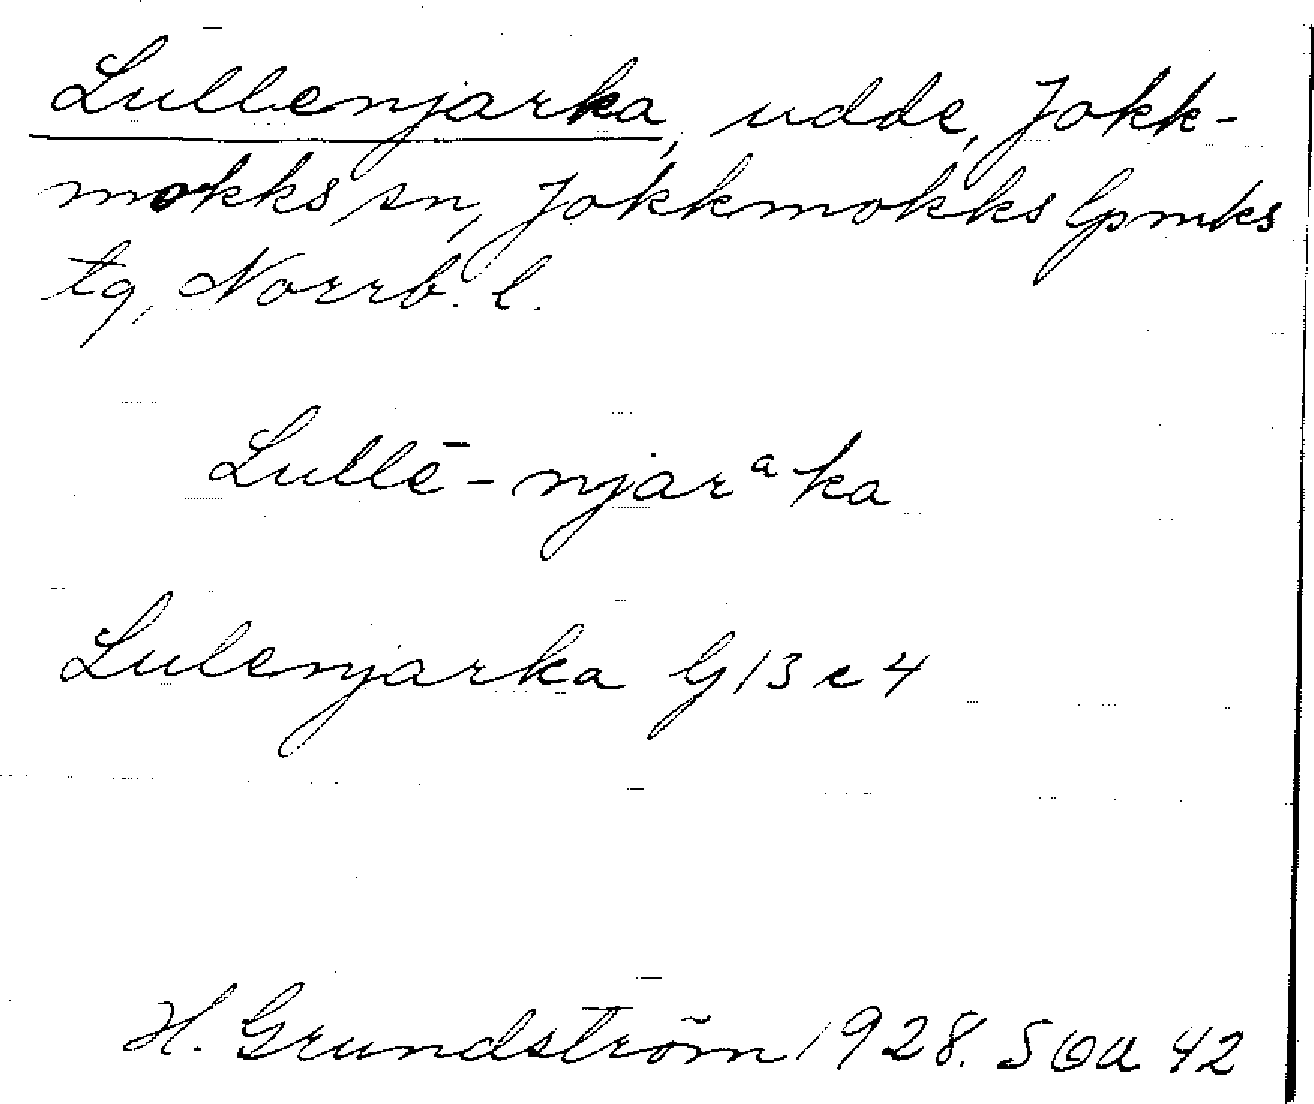 Lullenjarka, udde, Jokk-
mokks sn, Jokkmokks lpmks
tg, Norrb. l.
Lullē-njarᵃka
Lulenjarka G13c4
H. Grundström 1928. SOA 42